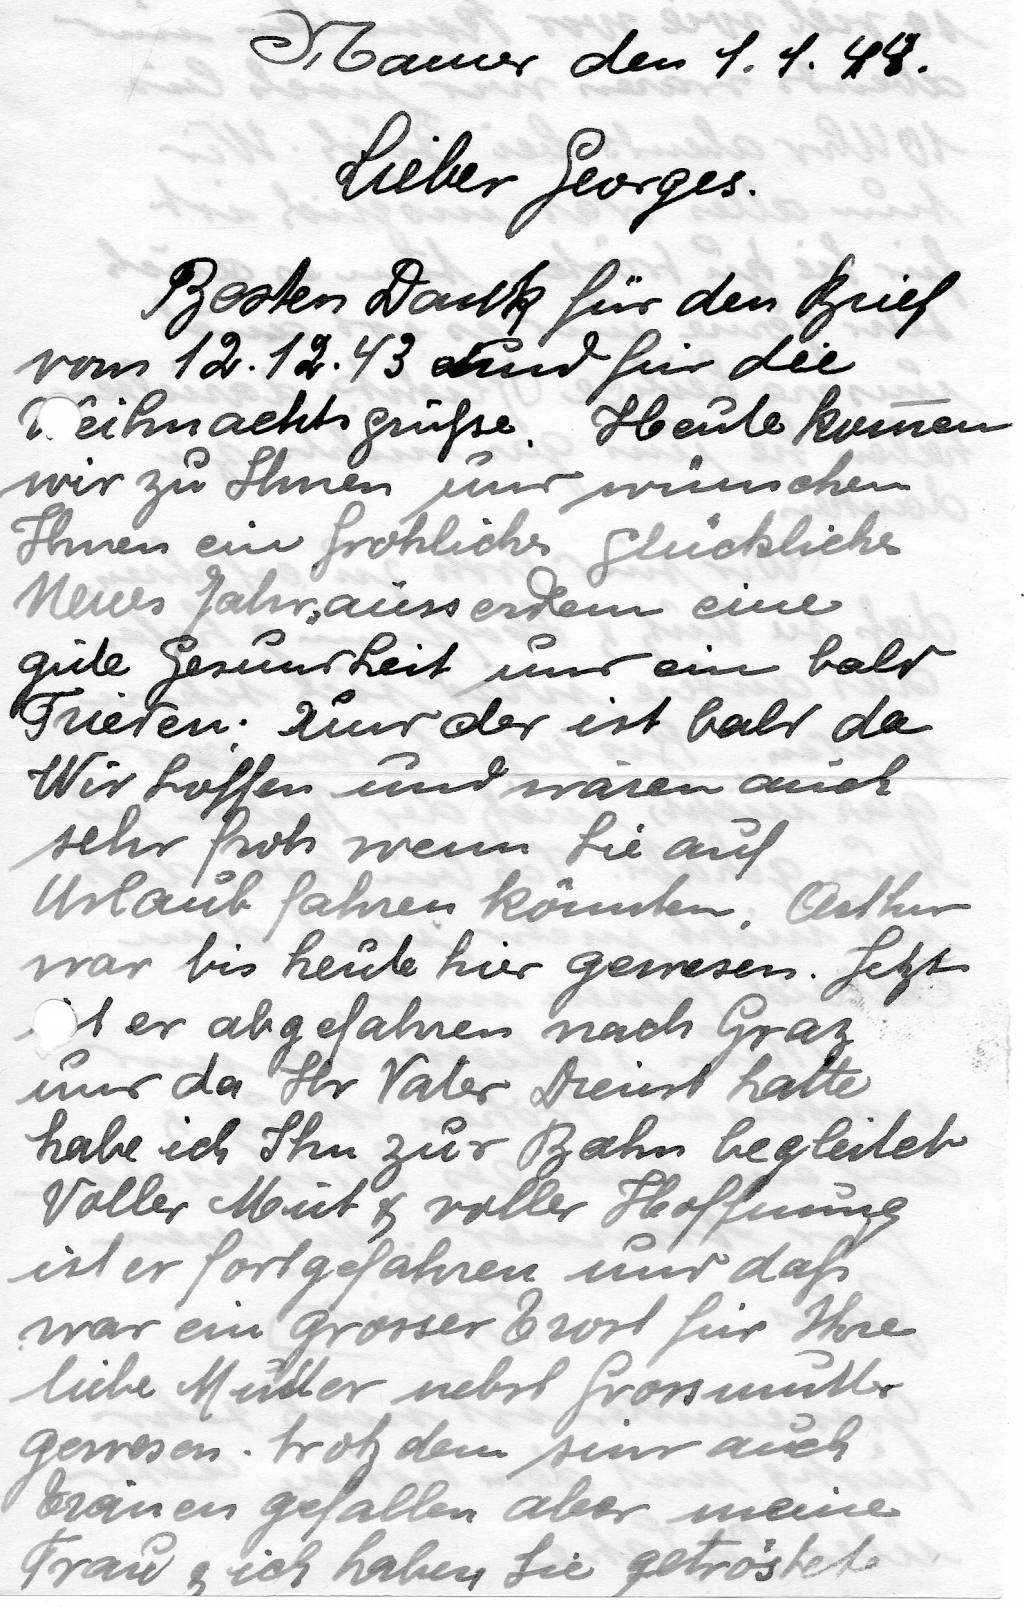 Mamer den 1. 1. 44.
Lieber Georges.
Besten Dank für den Brief
vom 12.12.43 und für die
Weihnachtsgrüsse. Heute kom̄en
wir zu Ihnen und wünschen
Ihnen ein frohliches glückliches
Neues Jahr, aussserdem eine
gute Gesundheit und ein bald
Frieden. Und der ist bald da
Wir hoffen und wären auch
sehr froh wenn Sie auf
Urlaub fahren könnten. Arthur
war bis heute hier gewesen. Jetzt
ist er abgefahren nach Graz
und da Ihr Vater Dienst hatte
habe ich Ihn zur Bahn begleitet
Voller Mut & voller Hoffnung
ist er fortgefahren und daß
war ein grosser Trost für Ihre
liebe Mutter nebst Grossmutter
gewesen. trotzdem sind auch
Tränen gefallen aber meine
Frau & ich haben Sie getröstet